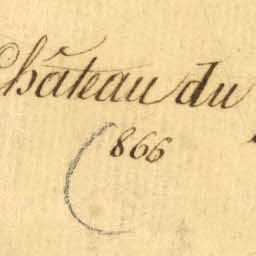 Château du
866